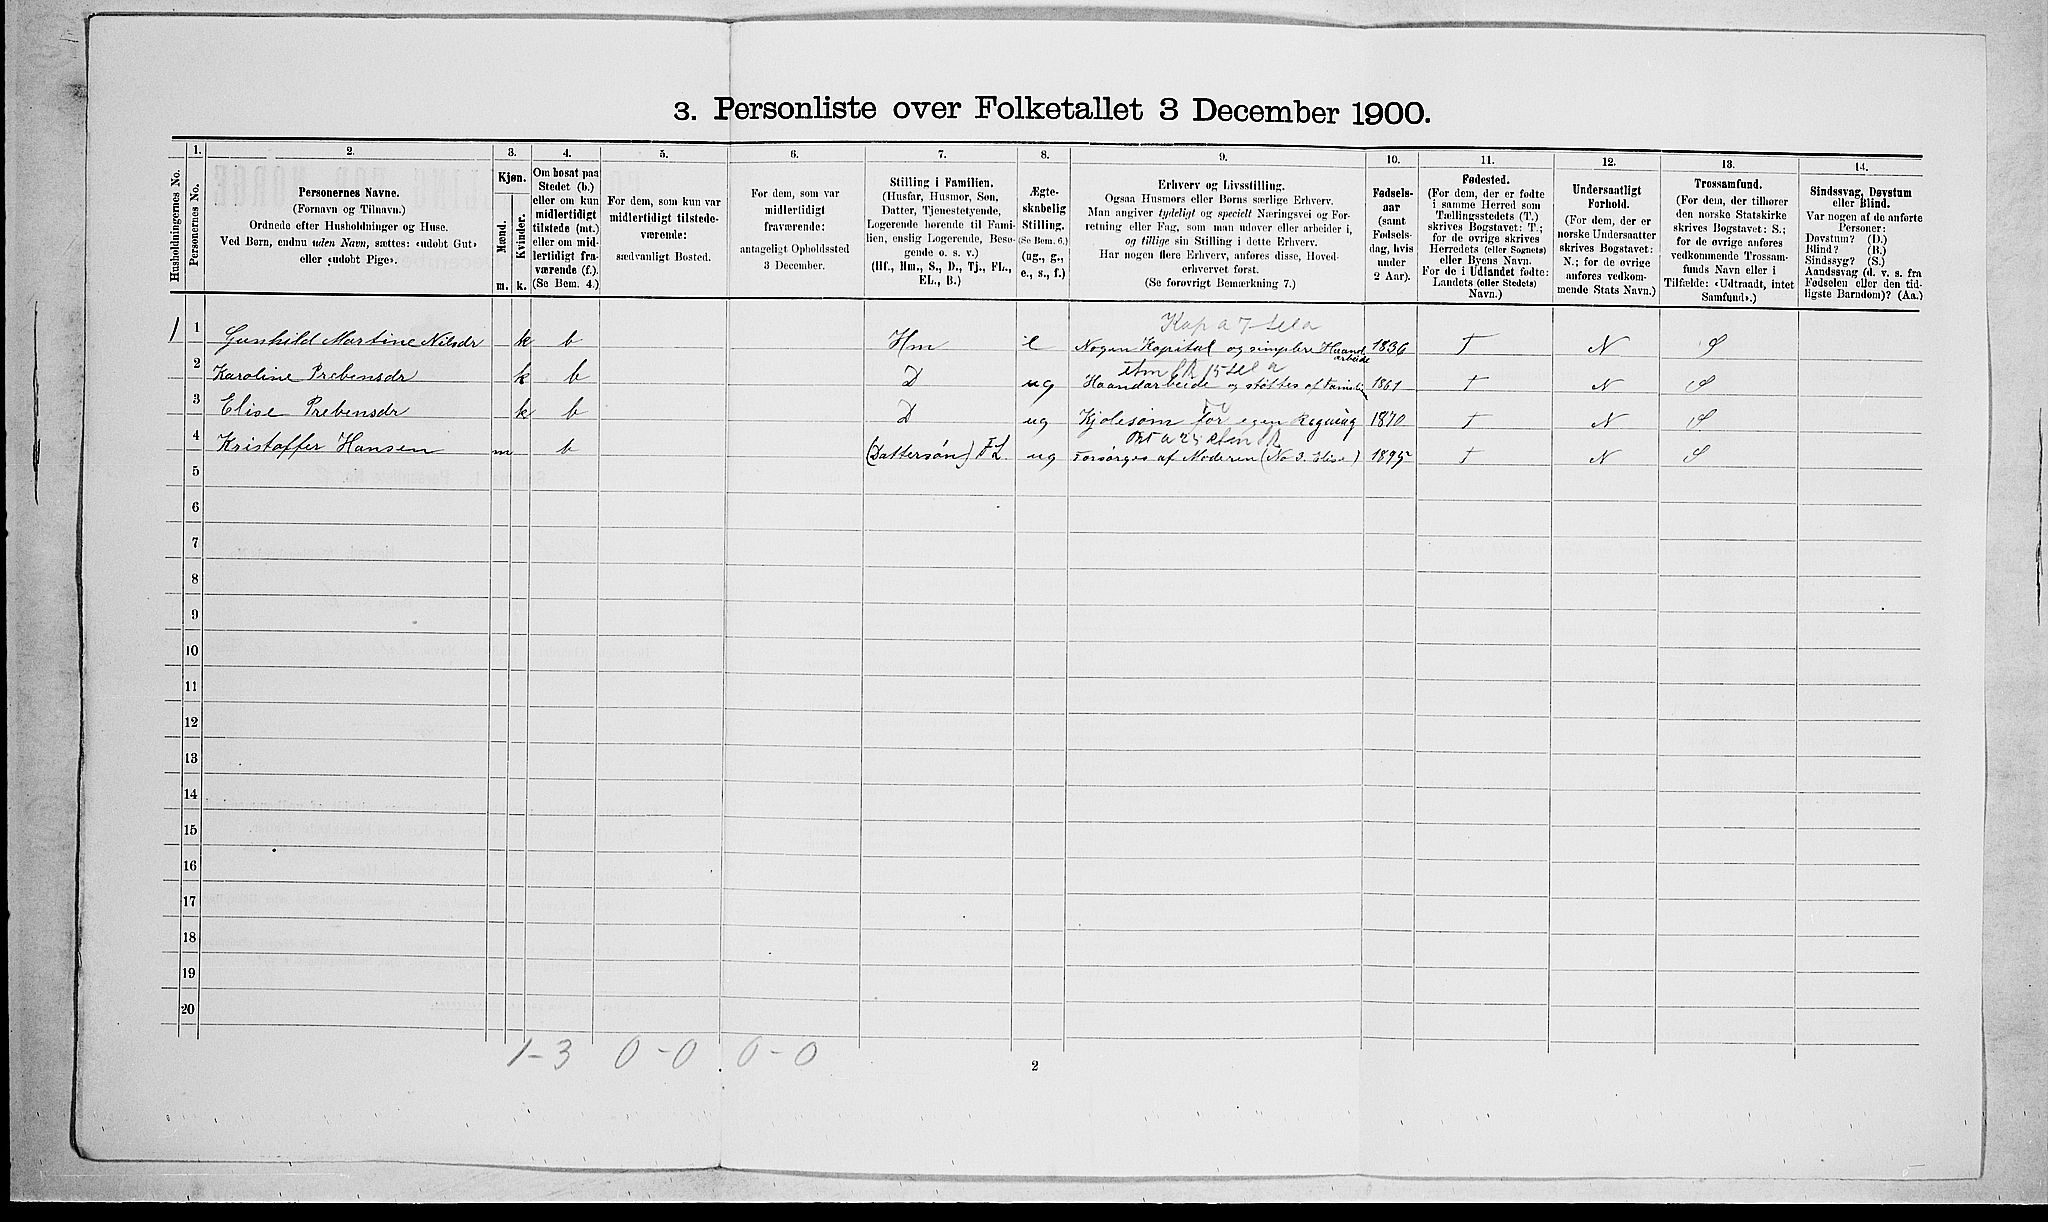 3. Personliste over Folketallet 3 December 1900.
1. 2. 3. 4. 5. 6. 7. 8. 9. 10. 11. 12. 13. 14.
Husholdningernes No.
Personernes No.
Personernes Navne.
(Fornavn og Tilnavn.)
Ordnede efter Husholdninger og Huse.
Ved Børn, endnu uden Navn, sættes: «udøbt Gut»
eller «udøbt Pige».
Kjøn.
Mænd.
Kvinder.
m. k.
Om bosat paa
Stedet (b.)
eller om kun
midlertidigt
tilstede (mt.)
eller om mid-
lertidigt fra-
værende (f.).
(Se Bem. 4.)
For dem, som kun var
midlertidigt tilstede-
værende:
sædvanligt Bosted.
For dem, som var
midlertidigt
fraværende:
antageligt Opholdssted
3 December.
Stilling i Familien.
(Husfar, Husmor, Søn,
Datter, Tjenestetyende,
Logerende hørende til Fami-
lien, enslig Logerende, Besø-
gende o. s. v.)
(Hf., Hm., S., D., Tj., FL.,
EL., B.)
Ægte-
skabelig
Stilling.
(Se Bem. 6.)
(ug., g.,
e., s., f.)
Erhverv og Livsstilling.
Ogsaa Husmors eller Børns særlige Erhverv.
Man angiver tydeligt og specielt Næringsvei og For-
retning eller Fag, som man udøver eller arbeider i,
og tillige sin Stilling i dette Erhverv.
Har nogen flere Erhverv, anføres disse, Hoved-
erhvervet først.
(Se forøvrigt Bemærkning 7.)
Fødsels-
aar
(samt
Fødsels-
dag, hvis
under
2 Aar).
Fødested.
(For dem, der er fødte
i samme Herred som
Tællingsstedets (T.)
skrives Bogstavet: T.;
for de øvrige skrives
Herredets (eller Sognets)
eller Byens Navn.
For de i Udlandet fødte:
Landets (eller Stedets)
Navn.)
Undersaatligt
Forhold.
(For dem, der er
norske Undersaatter
skrives Bogstavet:
N.; for de øvrige
anføres vedkom-
mende Stats Navn.)
Trossamfund.
(For dem, der tilhører
den norske Statskirke
skrives Bogstavet: S.;
for de øvrige anføres
vedkommende Trossam-
funds Navn eller i
Tilfælde: «Udtraadt, intet
Samfund».)
Sindssvag, Døvstum
eller Blind.
Var nogen af de anførte
Personer:
Døvstum? (D.)
Blind? (B.)
Sindssyg? (S.)
Aandssvag (d. v. s. fra
Fødselen eller den tid-
ligste Barndom)? (Aa.)
1 1 Gunhild Martine Nilsdr k b Hm e Nogen Kapital og simplere Haandarbeide 1836 T N S
2 Karoline Prebensdr k b D ug Haandarbeide og støttes af Familie 1861 T N S
3 Elise Prebensdr k b D ug Kjolesøm for egen Regning 1870 T N S
4 Kristoffer Hansen m b (Dattersøn) FL. ug Forsørges af Moderen (No 3. Elise) 1895 T N S
5
6
7
8
9
10
11
12
13
14
15
16
17
18
19
20
1-3 0-0 0-0
2